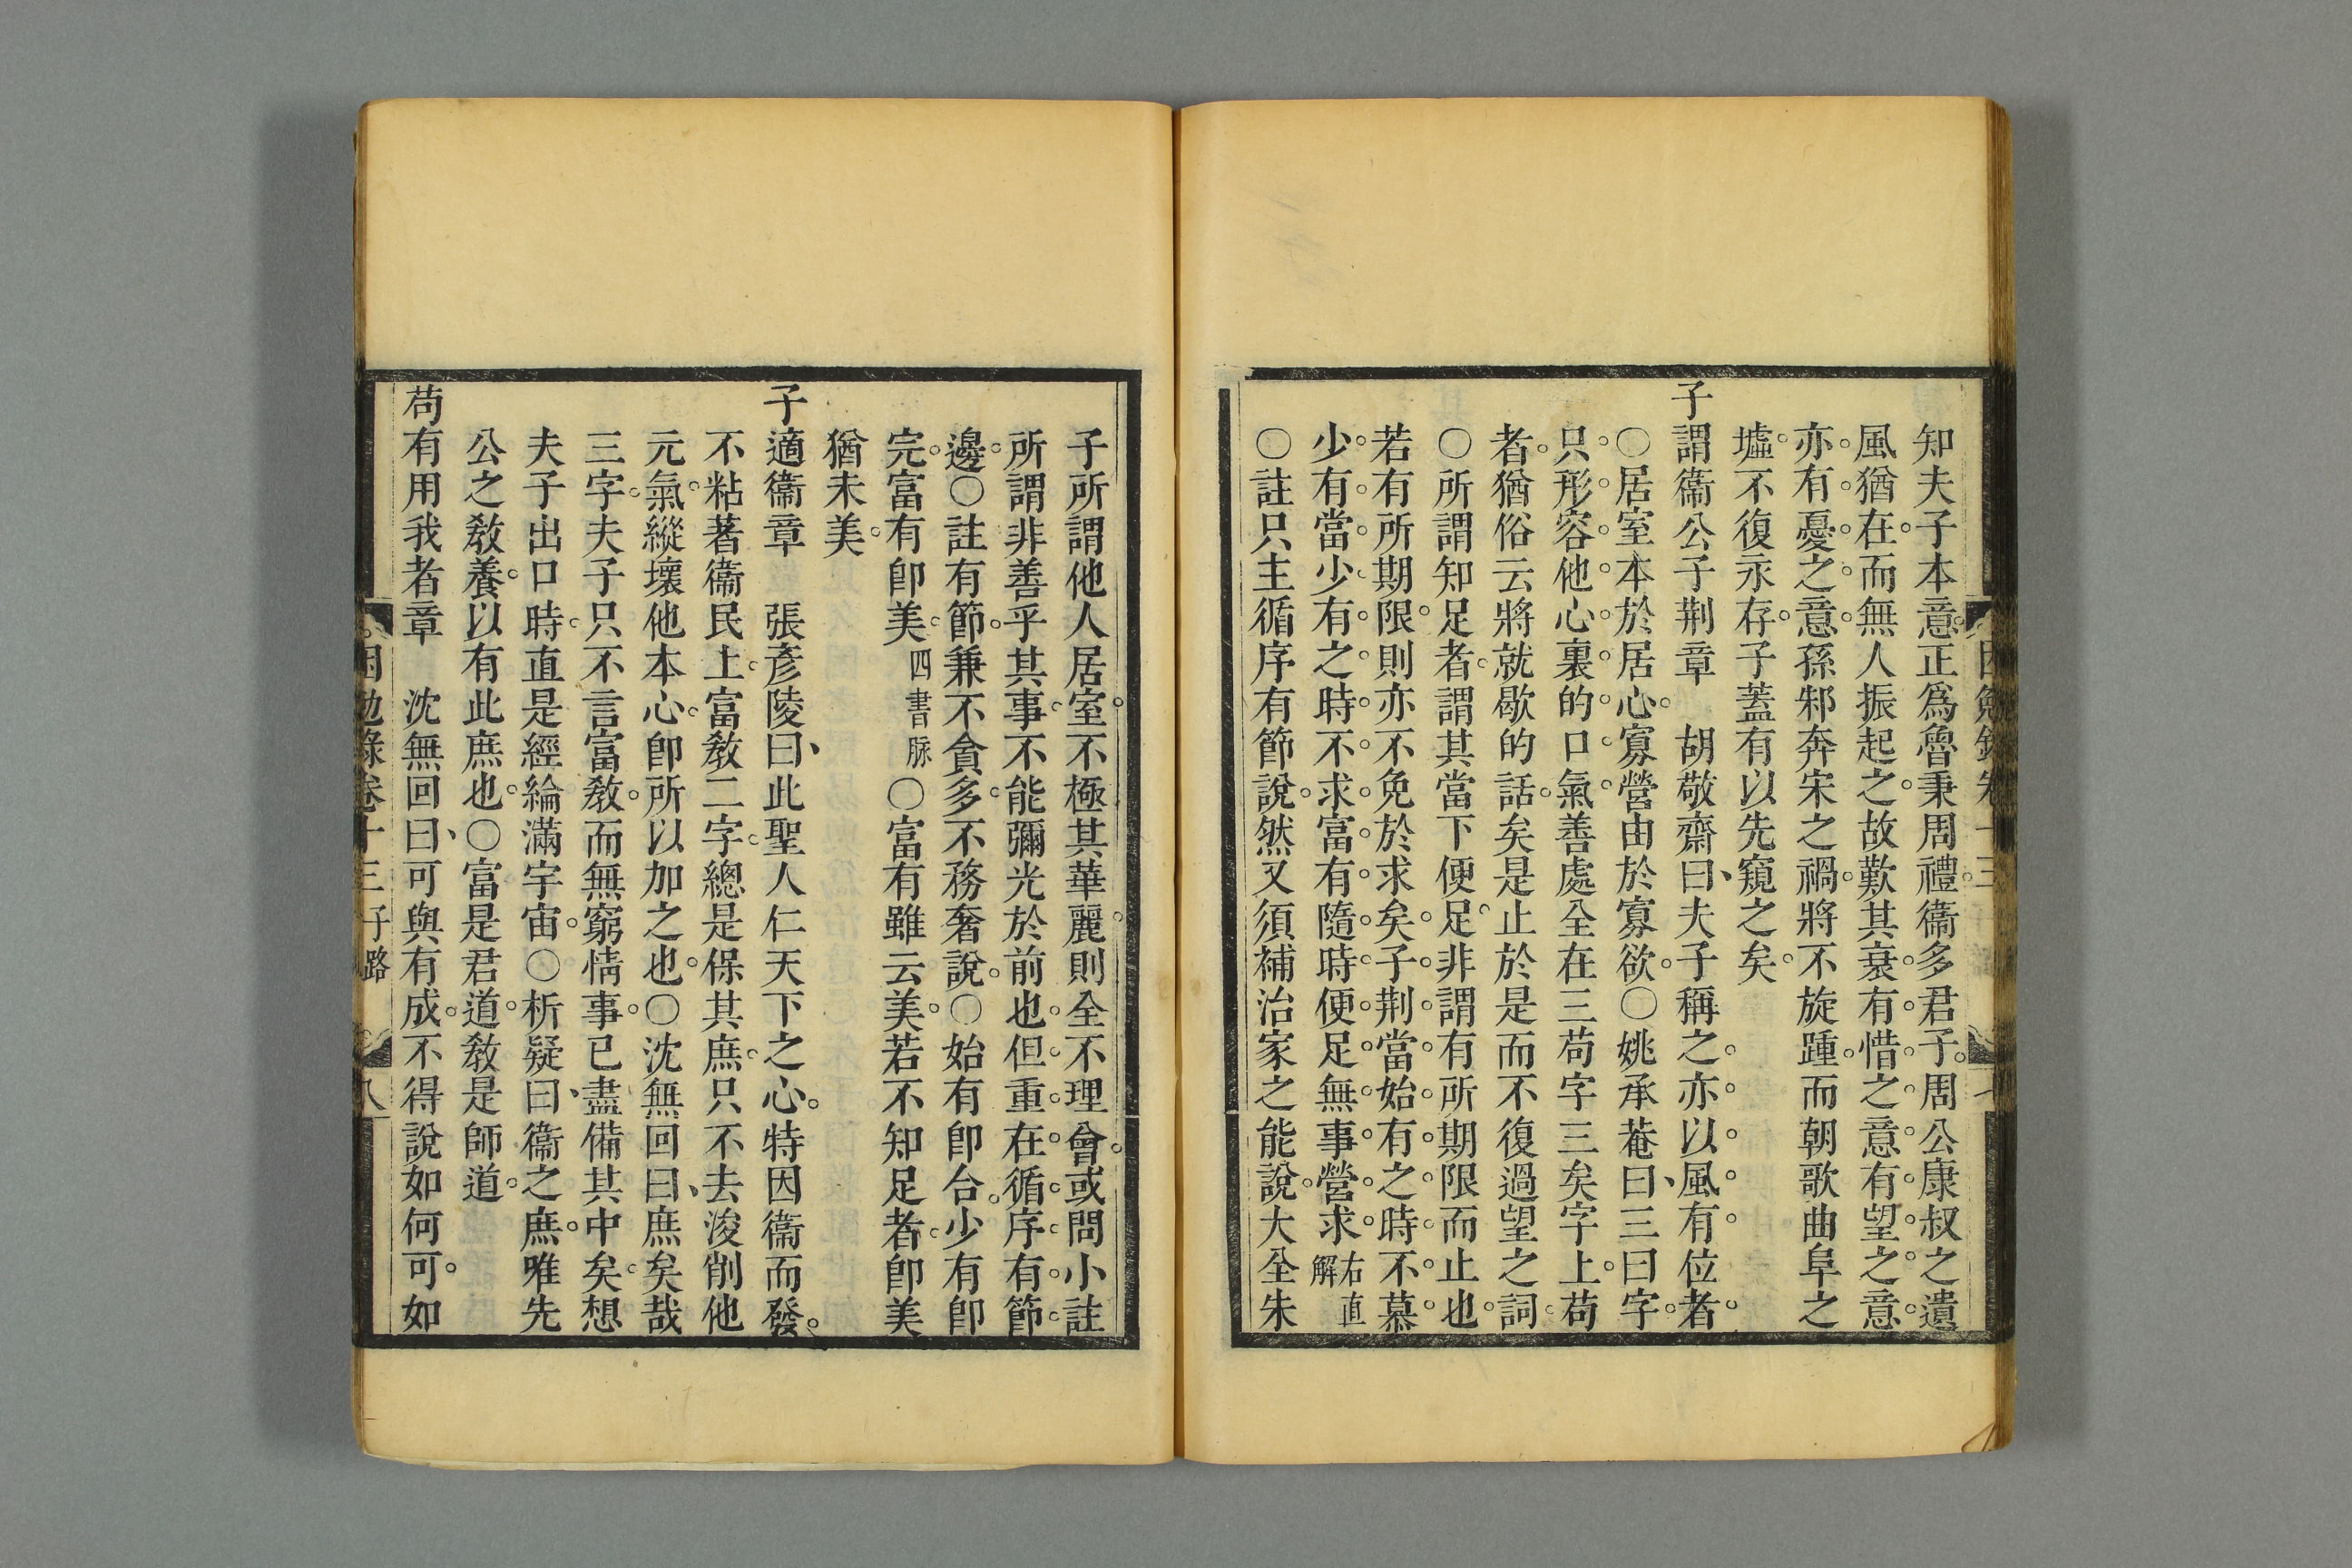 知夫子本意正爲魯秉周禮衞多君子周公康叔之遺
風猶在而無人振起之故歎其衰有惜之意有望之意
亦有憂之意孫邾奔宋之禍將不旋踵而朝歌曲阜之
墟不復永存子蓋有以先窺之矣
子謂衞公子荆章　胡敬齋曰夫子稱之亦以風有位者
〇居室本於居心寡營由於寡欲〇姚承菴曰三曰字
只形容他心裏的口氣善處全在三苟字三矣字上苟
者猶俗云將就歇的話矣是止於是而不復過望之詞
〇所謂知足者謂其當下便足非謂有所期限而止也
若有所期限則亦不免於求矣子荆當始有之時不慕
少有當少有之時不求富有隨時便足無事營求右直解
〇註只主循序有節說然又須補治家之能說大全朱
子所謂他人居室不極其華麗則全不理會或問小註
所謂非善乎其事不能彌光於前也但重在循序有節
邊〇註有節兼不貪多不務奢說〇始有卽合少有卽
完富有卽美四書脉〇富有雖云美若不知足者卽美
猶未美
子適衞章　張彥陵曰此聖人仁天下之心特因衞而發
不粘著衞民上富敎二字總是保其庶只不去浚削他
元氣縱壞他本心卽所以加之也〇沈無回曰庶矣哉
三字夫子只不言富敎而無窮情事已盡備其中矣想
夫子出口時直是經綸滿宇宙〇析疑曰衞之庶唯先
公之敎養以有此庶也〇富是君道敎是師道
苟有用我者章　沈無回曰可與有成不得說如何可如
困勉錄卷十三　子路　八